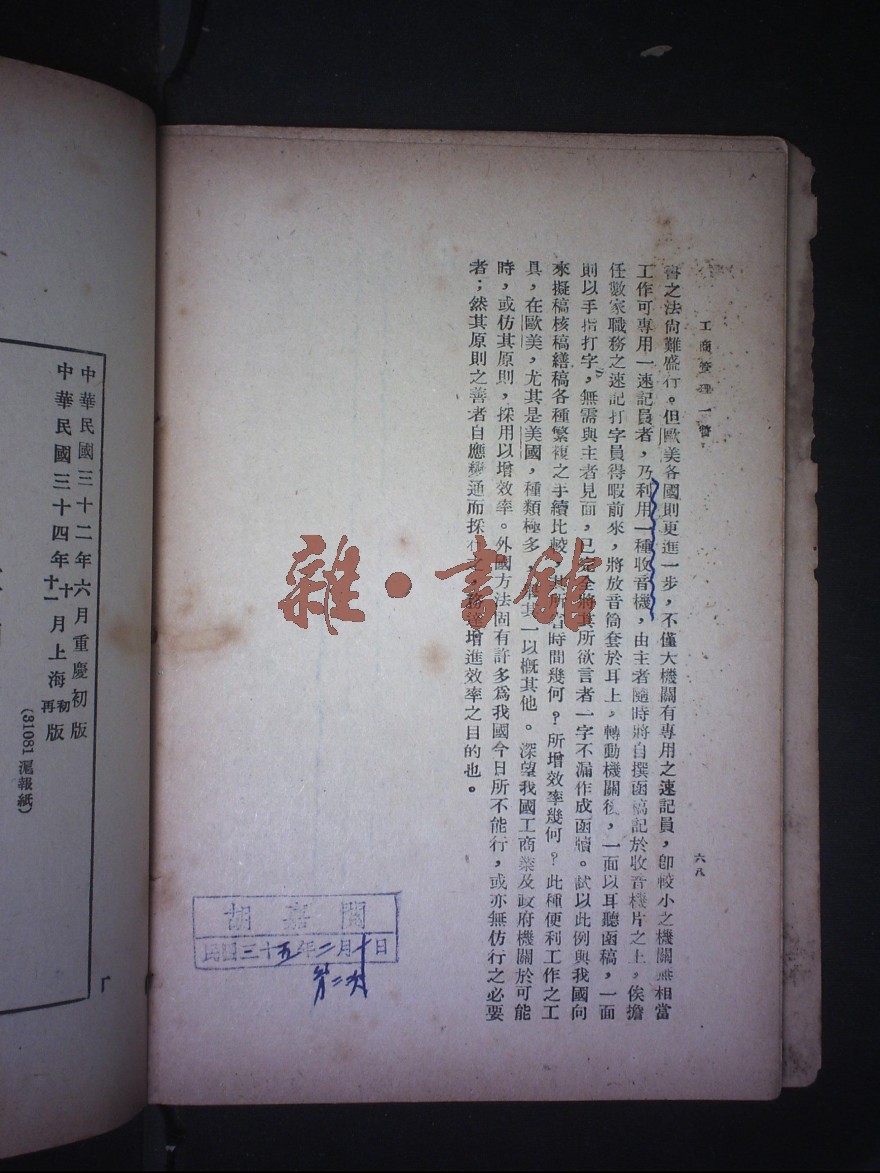 工商管理一瞥
六八
書之法尚難盛行。但歐美各國則更進一步，不僅大機關有專用之速記員，卽較小之機關無相當
工作可專用一速記員者，乃利用一種收音機，由主者隨時將自撰函稿記於收音機片之上，俟擔
任數家職務之速記打字員得暇前來，將放音筒套於耳上，轉動機關後，一面以耳聽函稿，一面
則以手指打字，無需與主者見面，已完全將其所欲言者一字不漏作成函牘。試以此例與我國向
來擬稿核稿繕稿各種繁複之手續比較，其所省時間幾何？所增效率幾何？此種便利工作之工
具，在歐美，尤其是美國，種類極多，其一以概其他。深望我國工商業及政府機關於可能
時，或仿其原則，採用以增效率。外國方法固有許多爲我國今日所不能行，或亦無仿行之必要
者；然其原則之善者自應變通而採增進效率之目的也。
胡嘉閬
民國三十五年二月十日
第二次
中華民國三十二年六月重慶初版
中華民國三十四年十月上海初版
十一 再
(31081滬報紙)
雜·書館